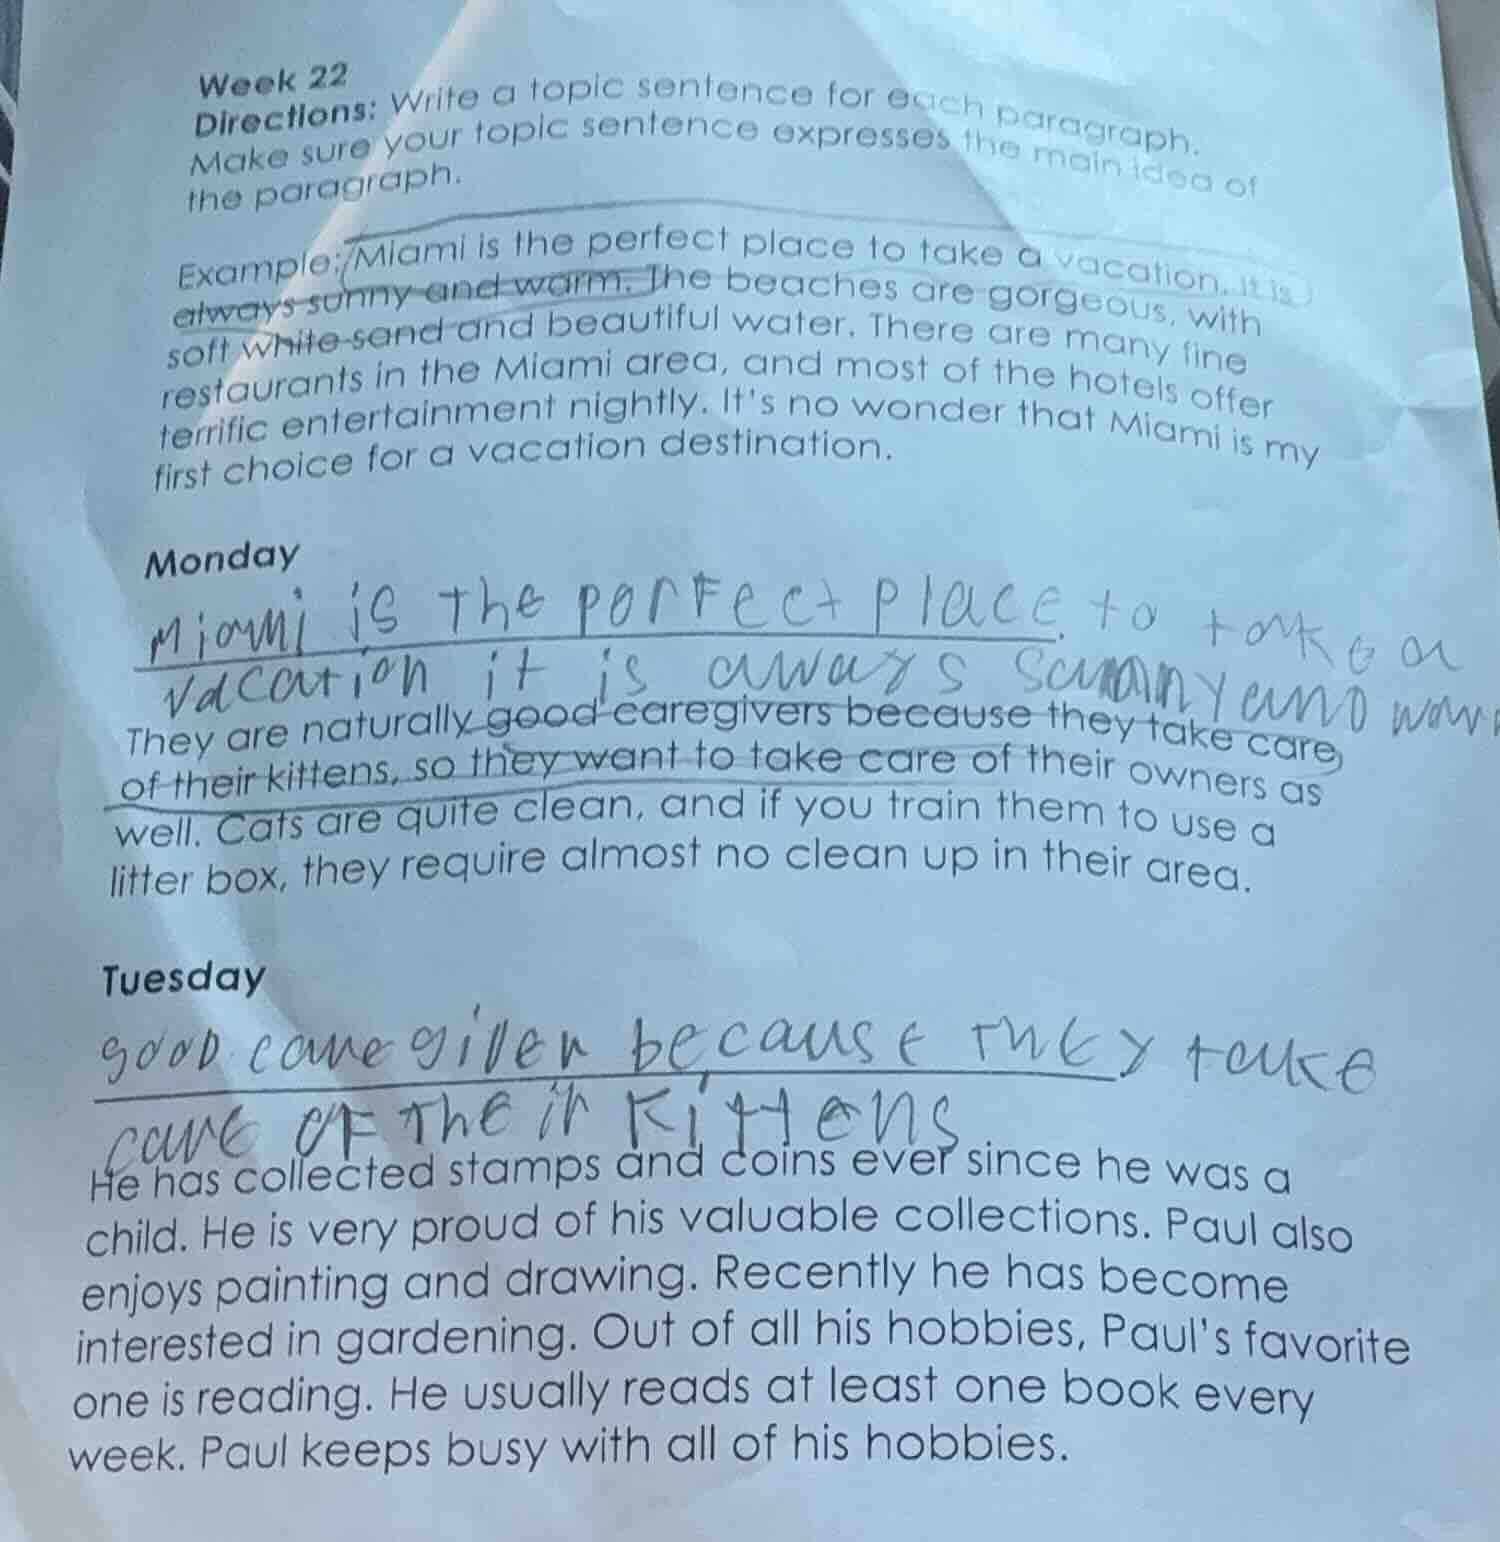 Week 22
Directions: Write a topic sentence for each paragraph.
Make sure your topic sentence expresses the main idea of
the paragraph.
Example: Miami is the perfect place to take a vacation. It is
always sunny and warm. The beaches are gorgeous, with
soft white sand and beautiful water. There are many fine
restaurants in the Miami area, and most of the hotels offer
terrific entertainment nightly. It's no wonder that Miami is my
first choice for a vacation destination.
Monday
Miami is the perfect place to take a
vacation it is aways sunny and warm
They are naturally good caregivers because they take care
of their kittens, so they want to take care of their owners as
well. Cats are quite clean, and if you train them to use a
litter box, they require almost no clean up in their area.
Tuesday
good care giver because they take
care of their kittens
He has collected stamps and coins ever since he was a
child. He is very proud of his valuable collections. Paul also
enjoys painting and drawing. Recently he has become
interested in gardening. Out of all his hobbies, Paul's favorite
one is reading. He usually reads at least one book every
week. Paul keeps busy with all of his hobbies.